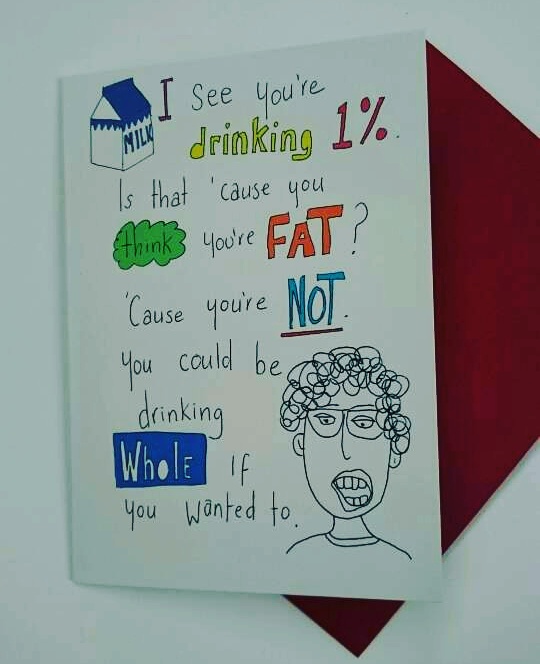 MILK
I See you're
drinking 1%.
Is that 'cause you
think you're FAT?
'Cause you're NOT.
You could be
drinking
WHOLE If
you wanted to.